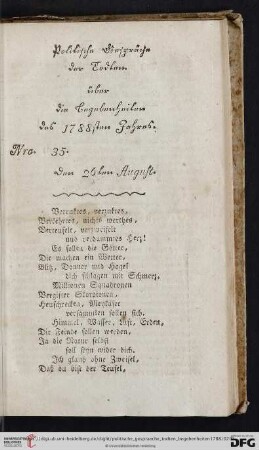 Politische Gespräche
der Todten
über
die Begebenheiten
des 1788sten Jahres.
Nro. 35.
Den 26ten August.
Verruktes, verzuktes,
Verkehrtes, nichts werthes,
Verteufelt, verzweifelt
und verdammtes Herz!
Es sollen die Götter,
Die machen ein Wetter,
Blitz, Donner und Hagel
dich schlagen mit Schmerz,
Millionen Squadronen
Vergifter Skorpionen,
Heuschrecken, Maykäfer
versammlen sollen sich.
Himmel, Wasser, Luft, Erden,
Die Feinde sollen werden,
Ja die Natur selbst
soll seyn wider dich.
Ich glaub ohne Zweifel,
Daß du bist der Teufel,
digi.ub.uni-heidelberg.de/diglit/politische_gespraeche_todten_begebenheiten1788
DFG